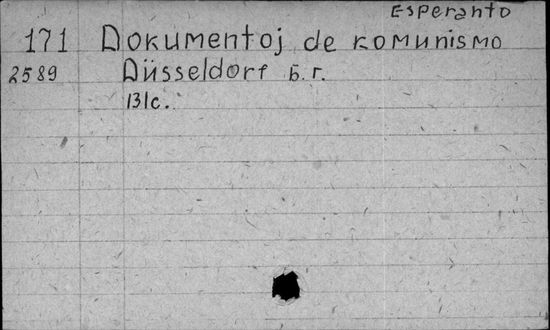 Esperanto
171 Dokumentoj de komunismo
2589 Düsseldorf б. г.
131c.